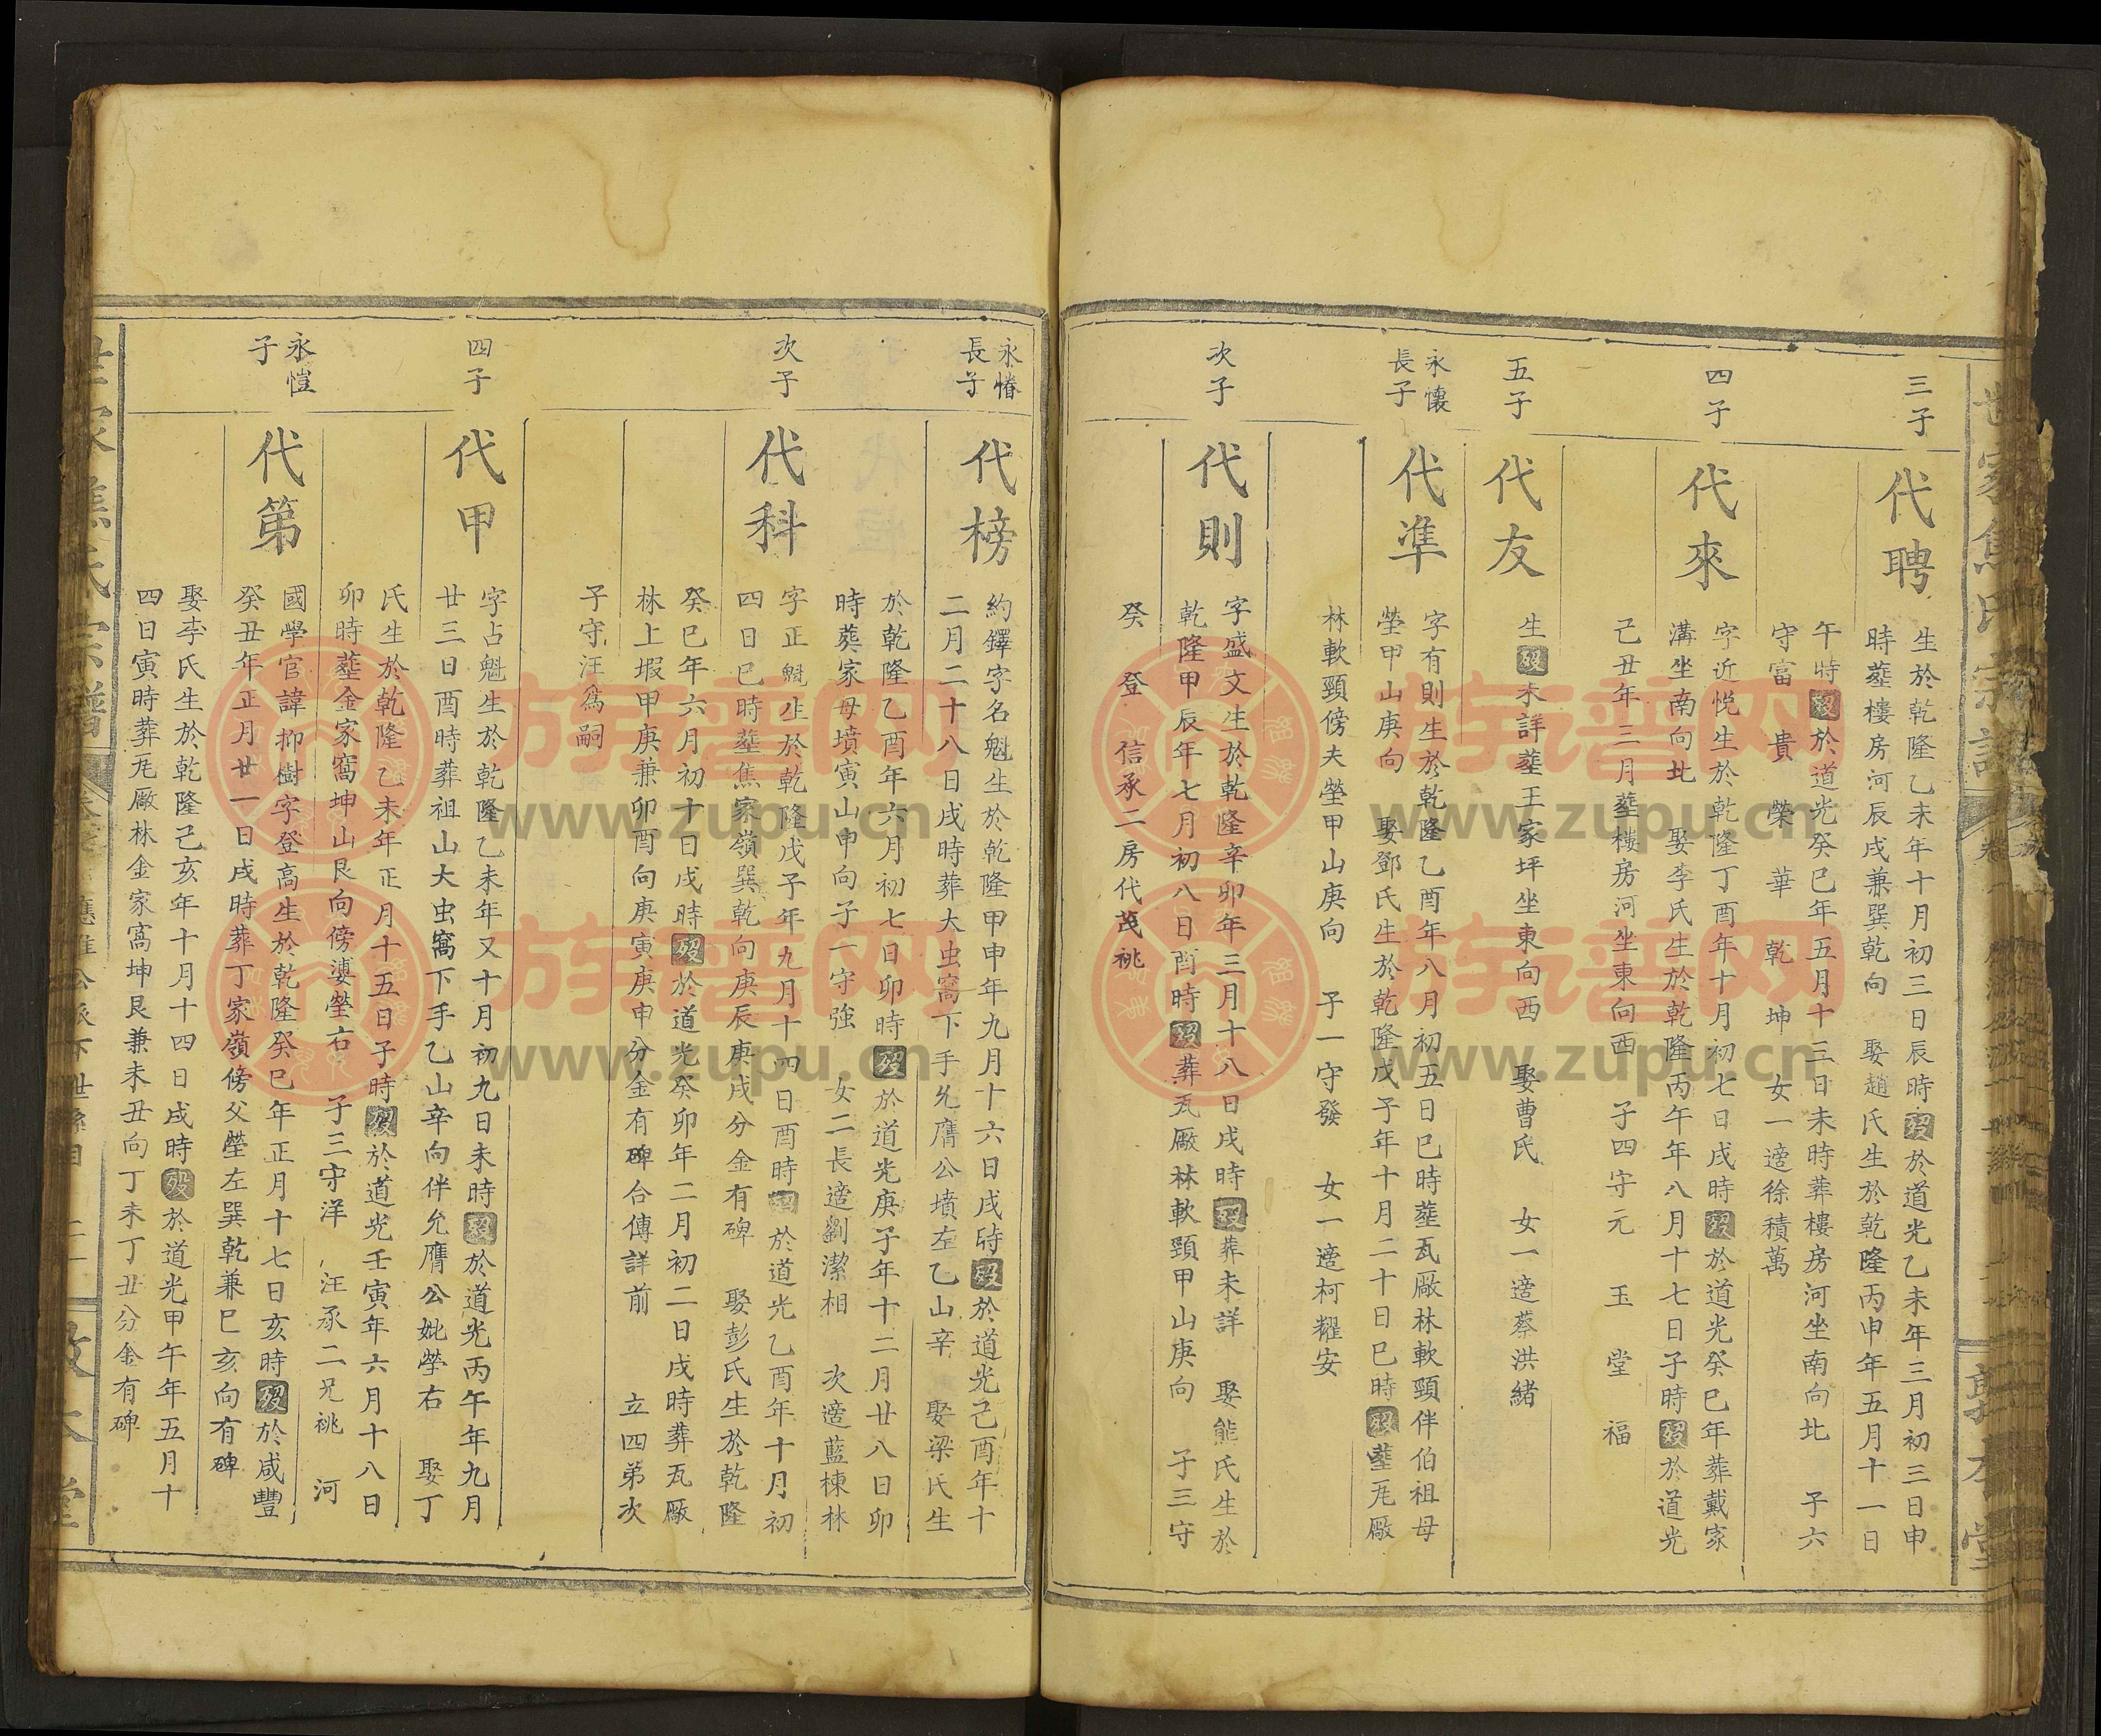 三子
代聘
生於乾隆乙未年十月初三日辰時歿於道光乙未年三月初三日申
時塟樓房河辰戌兼巽乾向 娶趙氏生於乾隆丙申年五月十一日
午時歿於道光癸巳年五月十三日未時葬樓房河坐南向北 子六
守富 貴 榮 華 乾 坤 女一適徐積萬
四子
代來
字近悦生於乾隆丁酉年十月初七日戌時歿於道光癸巳年葬戴家
溝坐南向北 娶李氏生於乾隆丙午年八月十七日子時歿於道光
己丑年三月塟樓房河坐東向西 子四守元 玉 堂 福
五子
代友
生歿未詳塟王家坪坐東向西 娶曹氏 女一適蔡洪緒
永懷
長子
代準
字有則生於乾隆乙酉年八月初五日巳時塟瓦厰林軟頸伴伯祖母
塋甲山庚向 娶鄧氏生於乾隆戊子年十月二十日巳時歿塟瓦厰
林軟頸傍夫塋甲山庚向 子一守發 女一適柯耀安
次子
代則
字盛文生於乾隆辛卯年三月十八日戌時歿葬未詳 娶熊氏生於
乾隆甲辰年七月初八日酉時歿葬瓦厰林軟頸甲山庚向 子三守
癸 登 信承二房代茂祧
永惷
長子
代榜
約鐸字名魁生於乾隆甲申年九月十六日戌時歿於道光己酉年十
二月二十八日戌時葬大虫窩下手允膺公墳左乙山辛 娶梁氏生
於乾隆乙酉年六月初七日卯時歿於道光庚子年十二月廿八日卯
時葬家母墳寅山申向子一守強 女二長適劉潔相 次適藍棟林
次子
代科
字正魁生於乾隆戊子年九月十四日酉時歿於道光乙酉年十月初
四日巳時塟焦家嶺巽乾向庚辰庚戌分金有碑 娶彭氏生於乾隆
癸巳年六月初十日戌時歿於道光癸卯年二月初二日戌時葬瓦厰
林上塅甲庚兼卯酉向庚寅庚申分金有碑合傳詳前 立四弟次
子守汪爲嗣
四子
代甲
字占魁生於乾隆乙未年又十月初九日未時歿於道光丙午年九月
廿三日酉時葬祖山大虫窩下手乙山辛向伴允膺公妣塋右 娶丁
氏生於乾隆乙未年正月十五日子時歿於道光壬寅年六月十八日
卯時塟金家窩坤山艮向傍婆塋右 子三守洋 汪承二兄祧 河
永愷
子
代第
國學官諱抑樹字登高生於乾隆癸巳年正月十七日亥時歿於咸豐
癸丑年正月廿一日戌時葬丁家嶺傍父塋左巽乾兼巳亥向有碑
娶李氏生於乾隆己亥年十月十四日戌時歿於道光甲午年五月十
四日寅時葬瓦厰林金家窩坤艮兼未丑向丁未丁丑分金有碑